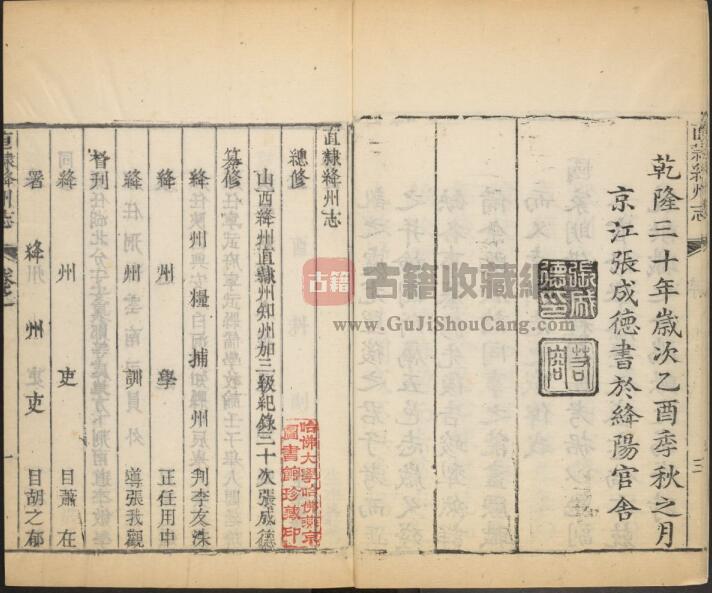 乾隆三十年歲次乙酉季秋之月
京江張成德書於絳陽官舍
張成德印
直隸絳州志
直隸絳州志
總修
山西絳州直隸州知州加三級紀錄三十次張成德
纂修
絳州糧捕州判李友洙
絳州學正任用中
絳州訓導張我觀
督刊
絳州吏目蕭在
署絳州吏目胡之郁
直隸絳州志
一
哈佛大學哈佛燕京
圖書館珍藏印
古籍
古籍收藏
www.GuJiShouCang.com